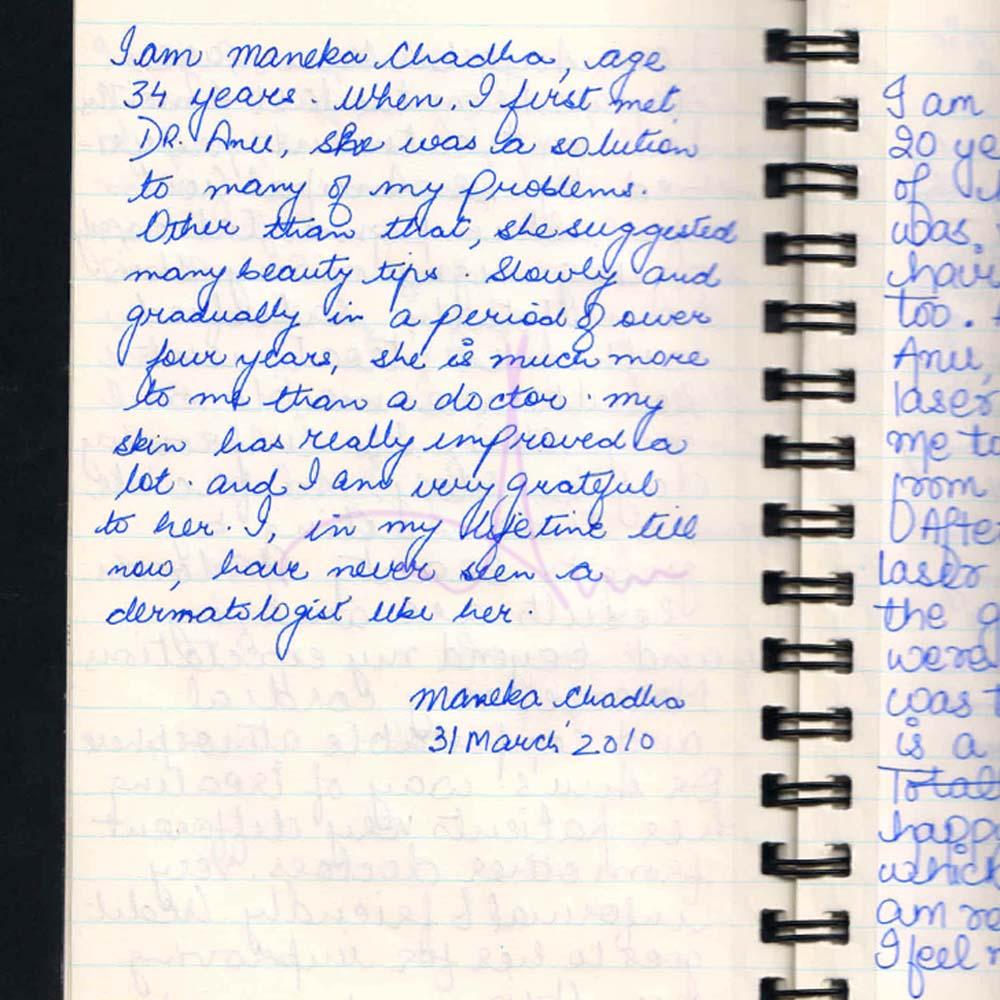 I am Maneka Chadha, age
34 years. When, I first met
DR. Anu, she was a solution
to many of my problems.
Other than that, she suggested
many beauty tips. Slowly and
gradually in a period of over
four years, she is much more
to me than a doctor. my
skin has really improved a
lot. and I am very grateful
to her. I, in my lifetime till
now, have never seen a
dermatologist like her.
Maneka Chadha
31 March' 2010
I am
20 ye
of
was,
hair
too.
Anu,
laser
me to
from
After
laser
the g
were
was t
is a
Total
happ
which
am re
I feel r